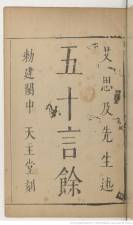 艾思及先生述
五十言餘
勅建閩中 天主堂刻